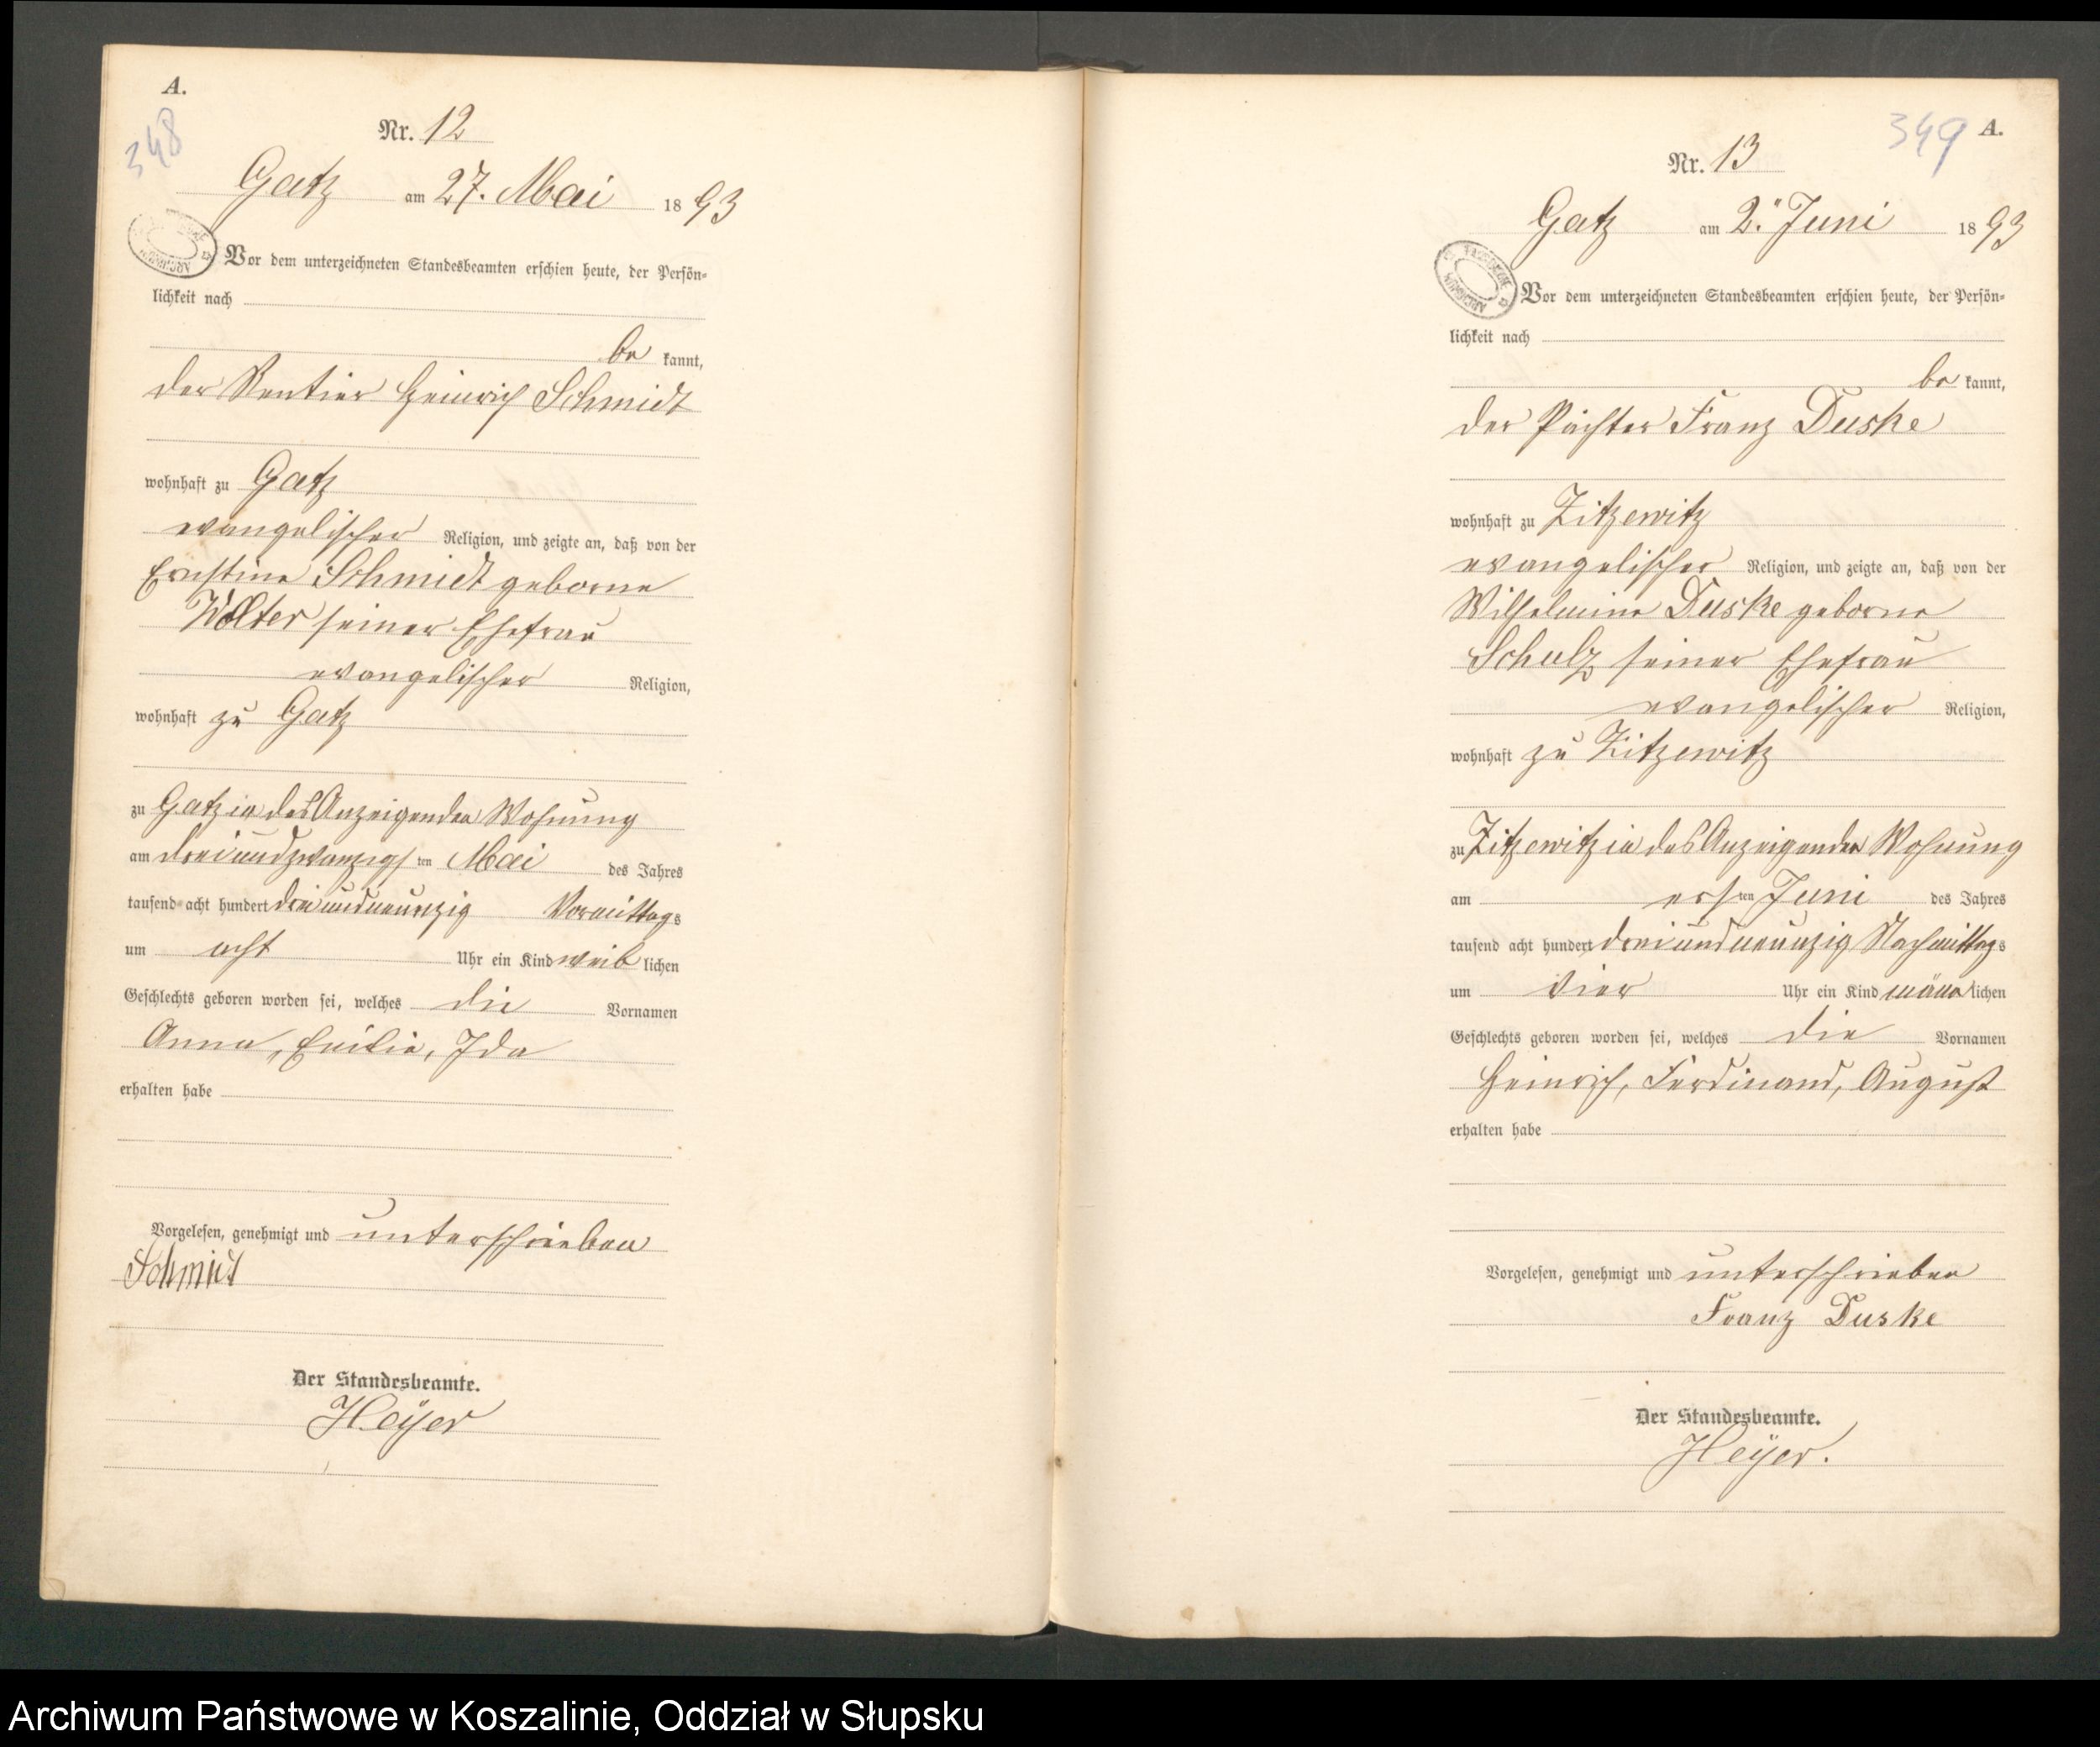 A.
348
Nr. 12
Gatz am 27. Mai 1893
Vor dem unterzeichneten Standesbeamten erschien heute, der Persön-
lichkeit nach
be kannt,
der Rentier Heinrich Schmidt
wohnhaft zu Gatz
evangelischer Religion, und zeigte an, daß von der
Ernstine Schmidt geborne
Wolter seiner Ehefrau
evangelischer Religion,
wohnhaft zu Gatz
zu Gatz in des Anzeigenden Wohnung
am dreiundzwanzigs ten Mai des Jahres
tausend acht hundert dreiundneunzig Vormittags
um acht Uhr ein Kind weib lichen
Geschlechts geboren worden sei, welches die Vornamen
Anna, Emilie, Ida
erhalten habe
Vorgelesen, genehmigt und unterschrieben
Schmidt
Der Standesbeamte.
Heÿer
349 A.
Nr. 13
Gatz am 2. Juni 1893
ARCHIWUM
Vor dem unterzeichneten Standesbeamten erschien heute, der Persön-
lichkeit nach
be kannt,
der Pächter Franz Duske
wohnhaft zu Zitzewitz
evangelischer Religion, und zeigte an, daß von der
Wilhelmine Duske geborne
Schulz seiner Ehefrau
evangelischer Religion,
wohnhaft zu Zitzewitz
zu Zitzewitz in des Anzeigenden Wohnung
am ers ten Juni des Jahres
tausend acht hundert dreiundneunzig Nachmittags
um vier Uhr ein Kind männ lichen
Geschlechts geboren worden sei, welches die Vornamen
Heinrich, Ferdinand, August
erhalten habe
Vorgelesen, genehmigt und unterschrieben
Franz Duske
Der Standesbeamte.
Heÿer.
Archiwum Państwowe w Koszalinie, Oddział w Słupsku